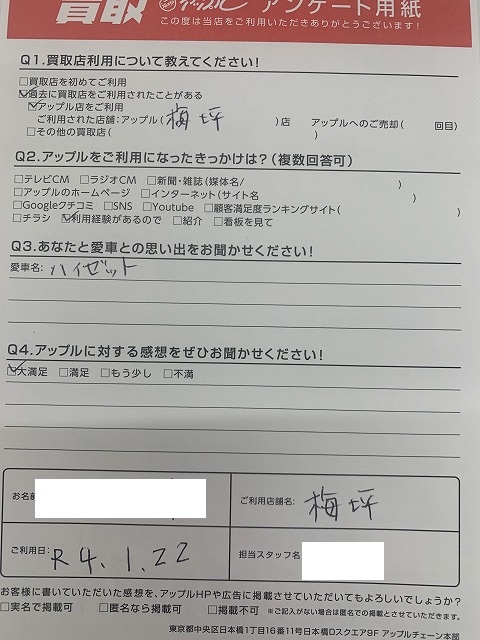 買取 アップル アンケート用紙
この度は当店をご利用いただきありがとうございます!
Q1.買取店利用について教えてください!
□買取店を初めてご利用
☑過去に買取店をご利用されたことがある
☑アップル店をご利用
ご利用された店舗:アップル( 梅坪 )店 アップルへのご売却( 回目)
□その他の買取店( )
Q2.アップルをご利用になったきっかけは?(複数回答可)
□テレビCM □ラジオCM □新聞・雑誌(媒体名/ )
□アップルのホームページ □インターネット(サイト名 )
□Googleクチコミ □SNS □Youtube □顧客満足度ランキングサイト( )
□チラシ ☑利用経験があるので □紹介 □看板を見て
Q3.あなたと愛車との思い出をお聞かせください!
愛車名: ハイゼット
Q4.アップルに対する感想をぜひお聞かせください!
☑大満足 □満足 □もう少し □不満
お名前
ご利用店舗名: 梅坪
ご利用日: R4.1.22
担当スタッフ名
お客様に書いていただいた感想を、アップルHPや広告に掲載させていただいてもよろしいでしょうか?
□実名で掲載可 □匿名なら掲載可 □掲載不可 ※ご記入がない場合は匿名での掲載とさせていただきます。
東京都中央区日本橋1丁目16番11号日本橋Dスクエア9F アップルチェーン本部